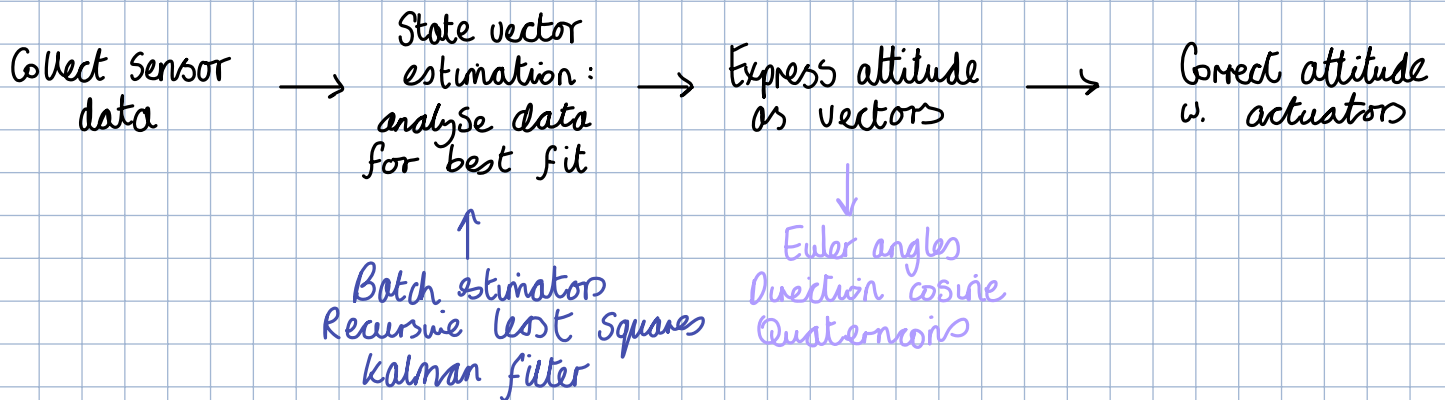 Collect sensor
data
State vector
estimation:
analyse data
for best fit
Express attitude
as vectors
Correct attitude
w. actuators
Batch estimators
Recursive least squares
Kalman filter
Euler angles
Direction cosine
Quaternions